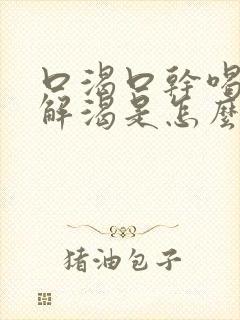 口渴口幹喝
解渴是怎麼
猪油包子